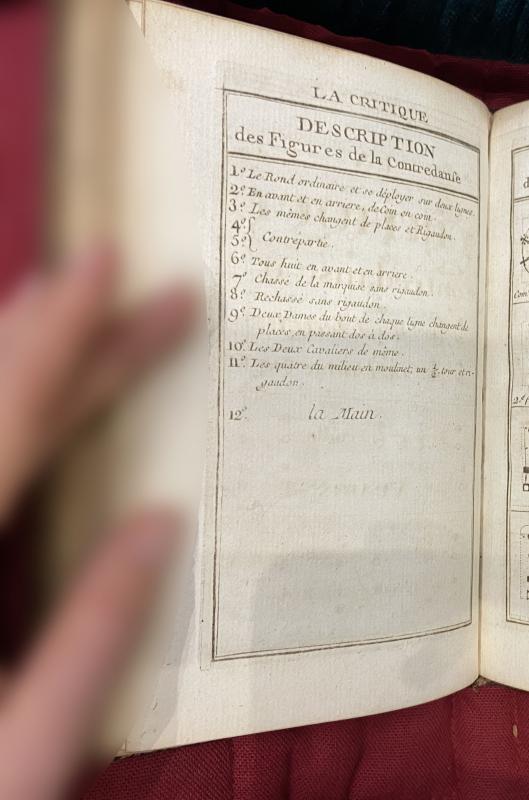 LA CRITIQUE
DESCRIPTION
des Figures de la Contredanſe
1.e Le Rond ordinaire et se déployer sur deux lignes.
2.e En avant et en arriere, de Coin en coin.
3.e Les mêmes changent de places et Rigaudon.
4.e
5.e Contrepartie.
6.e Tous huit en avant et en arriere.
7.e Chassé de la marquise sans rigaudon.
8.e Rechassé sans rigaudon.
9.e Deux Dames du bout de chaque ligne changent de
places en passant dos à dos.
10.e Les Deux Cavaliers de même.
11.e Les quatre du milieu en moulinet, un ½ tour et ri-
gaudon.
12.e la Main.